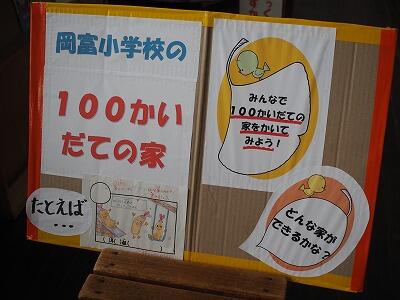 岡富小学校の
100かい
だての家
たとえば
…
みんなで
100かいだての
家をかいて
みよう!
どんな家が
できるかな?